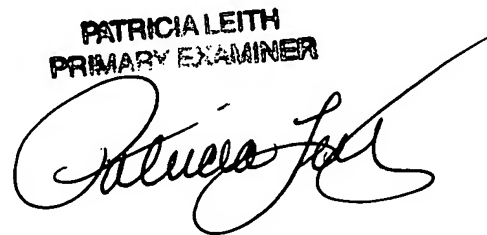 PATRICIA LEITH
PRIMARY EXAMINER
Patricia Leith